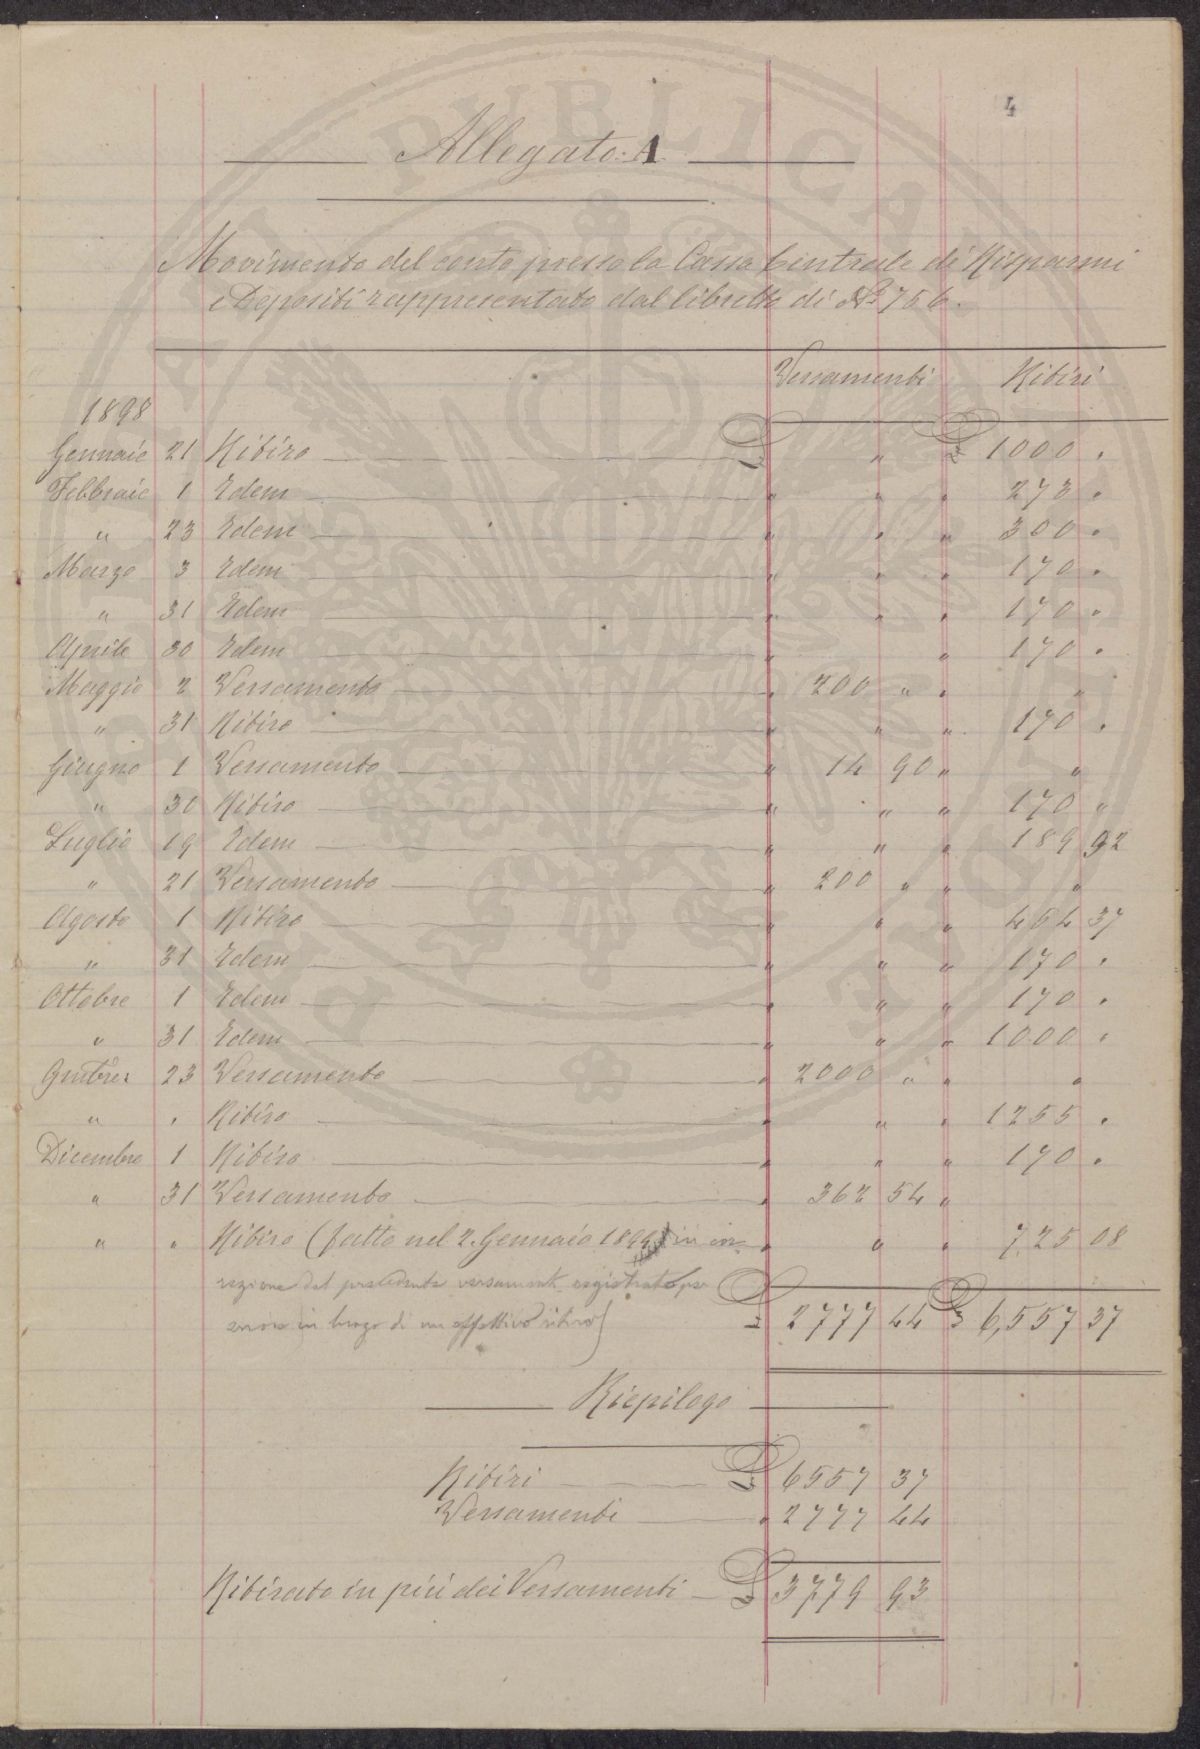 4
Allegato A
Movimento del conto presso la Cassa Centrale di Risparmi
e Depositi rappresentato dal libretto di No 756.
Versamenti Ritiri
1898
Gennaio 21 Ritiro £ " £ 1000 "
Febbraio 1 Idem " " " 273 "
" 23 Idem " " " 300 "
Marzo 3 Idem " " " 170 "
" 31 Idem " " " 170 "
Aprile 30 Idem " " 170 "
Maggio 2 Versamento " 200 " " "
" 31 Ritiro " " 170 "
Giugno 1 Versamento " 14 90 " "
" 30 Ritiro " " " 170 "
Luglio 19 Idem " " " 189 92
" 21 Versamento " 200 " " "
Agosto 1 Ritiro " " " 454 37
" 31 Idem " " " 170 "
Ottobre 1 Idem " " " 170 "
" 31 Idem " " " 1000 "
9mbre 23 Versamento " 2000 " " "
" " Ritiro " " " 1255 "
Dicembre 1 Ritiro " " " 170 "
" 31 Versamento " 362 54 "
" " Ritiro (fatto nel 2. Gennaio 189 in cor= " " " 725 08
rezione del precedente versamento registrato per
errore in luogo di un effettivo ritiro)
£ 2777 44 £ 6,557 37
Riepilogo
Ritiri £ 6557 37
Versamenti " 2777 44
Ritirato in più dei Versamenti £ 3779 93
PUBLICAE